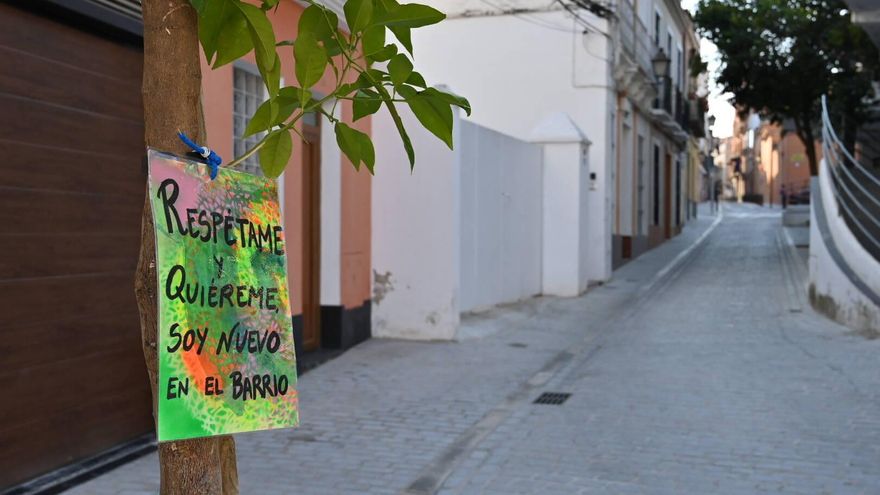 RESPÉTAME
Y
QUIÉREME,
SOY NUEVO
EN EL BARRIO